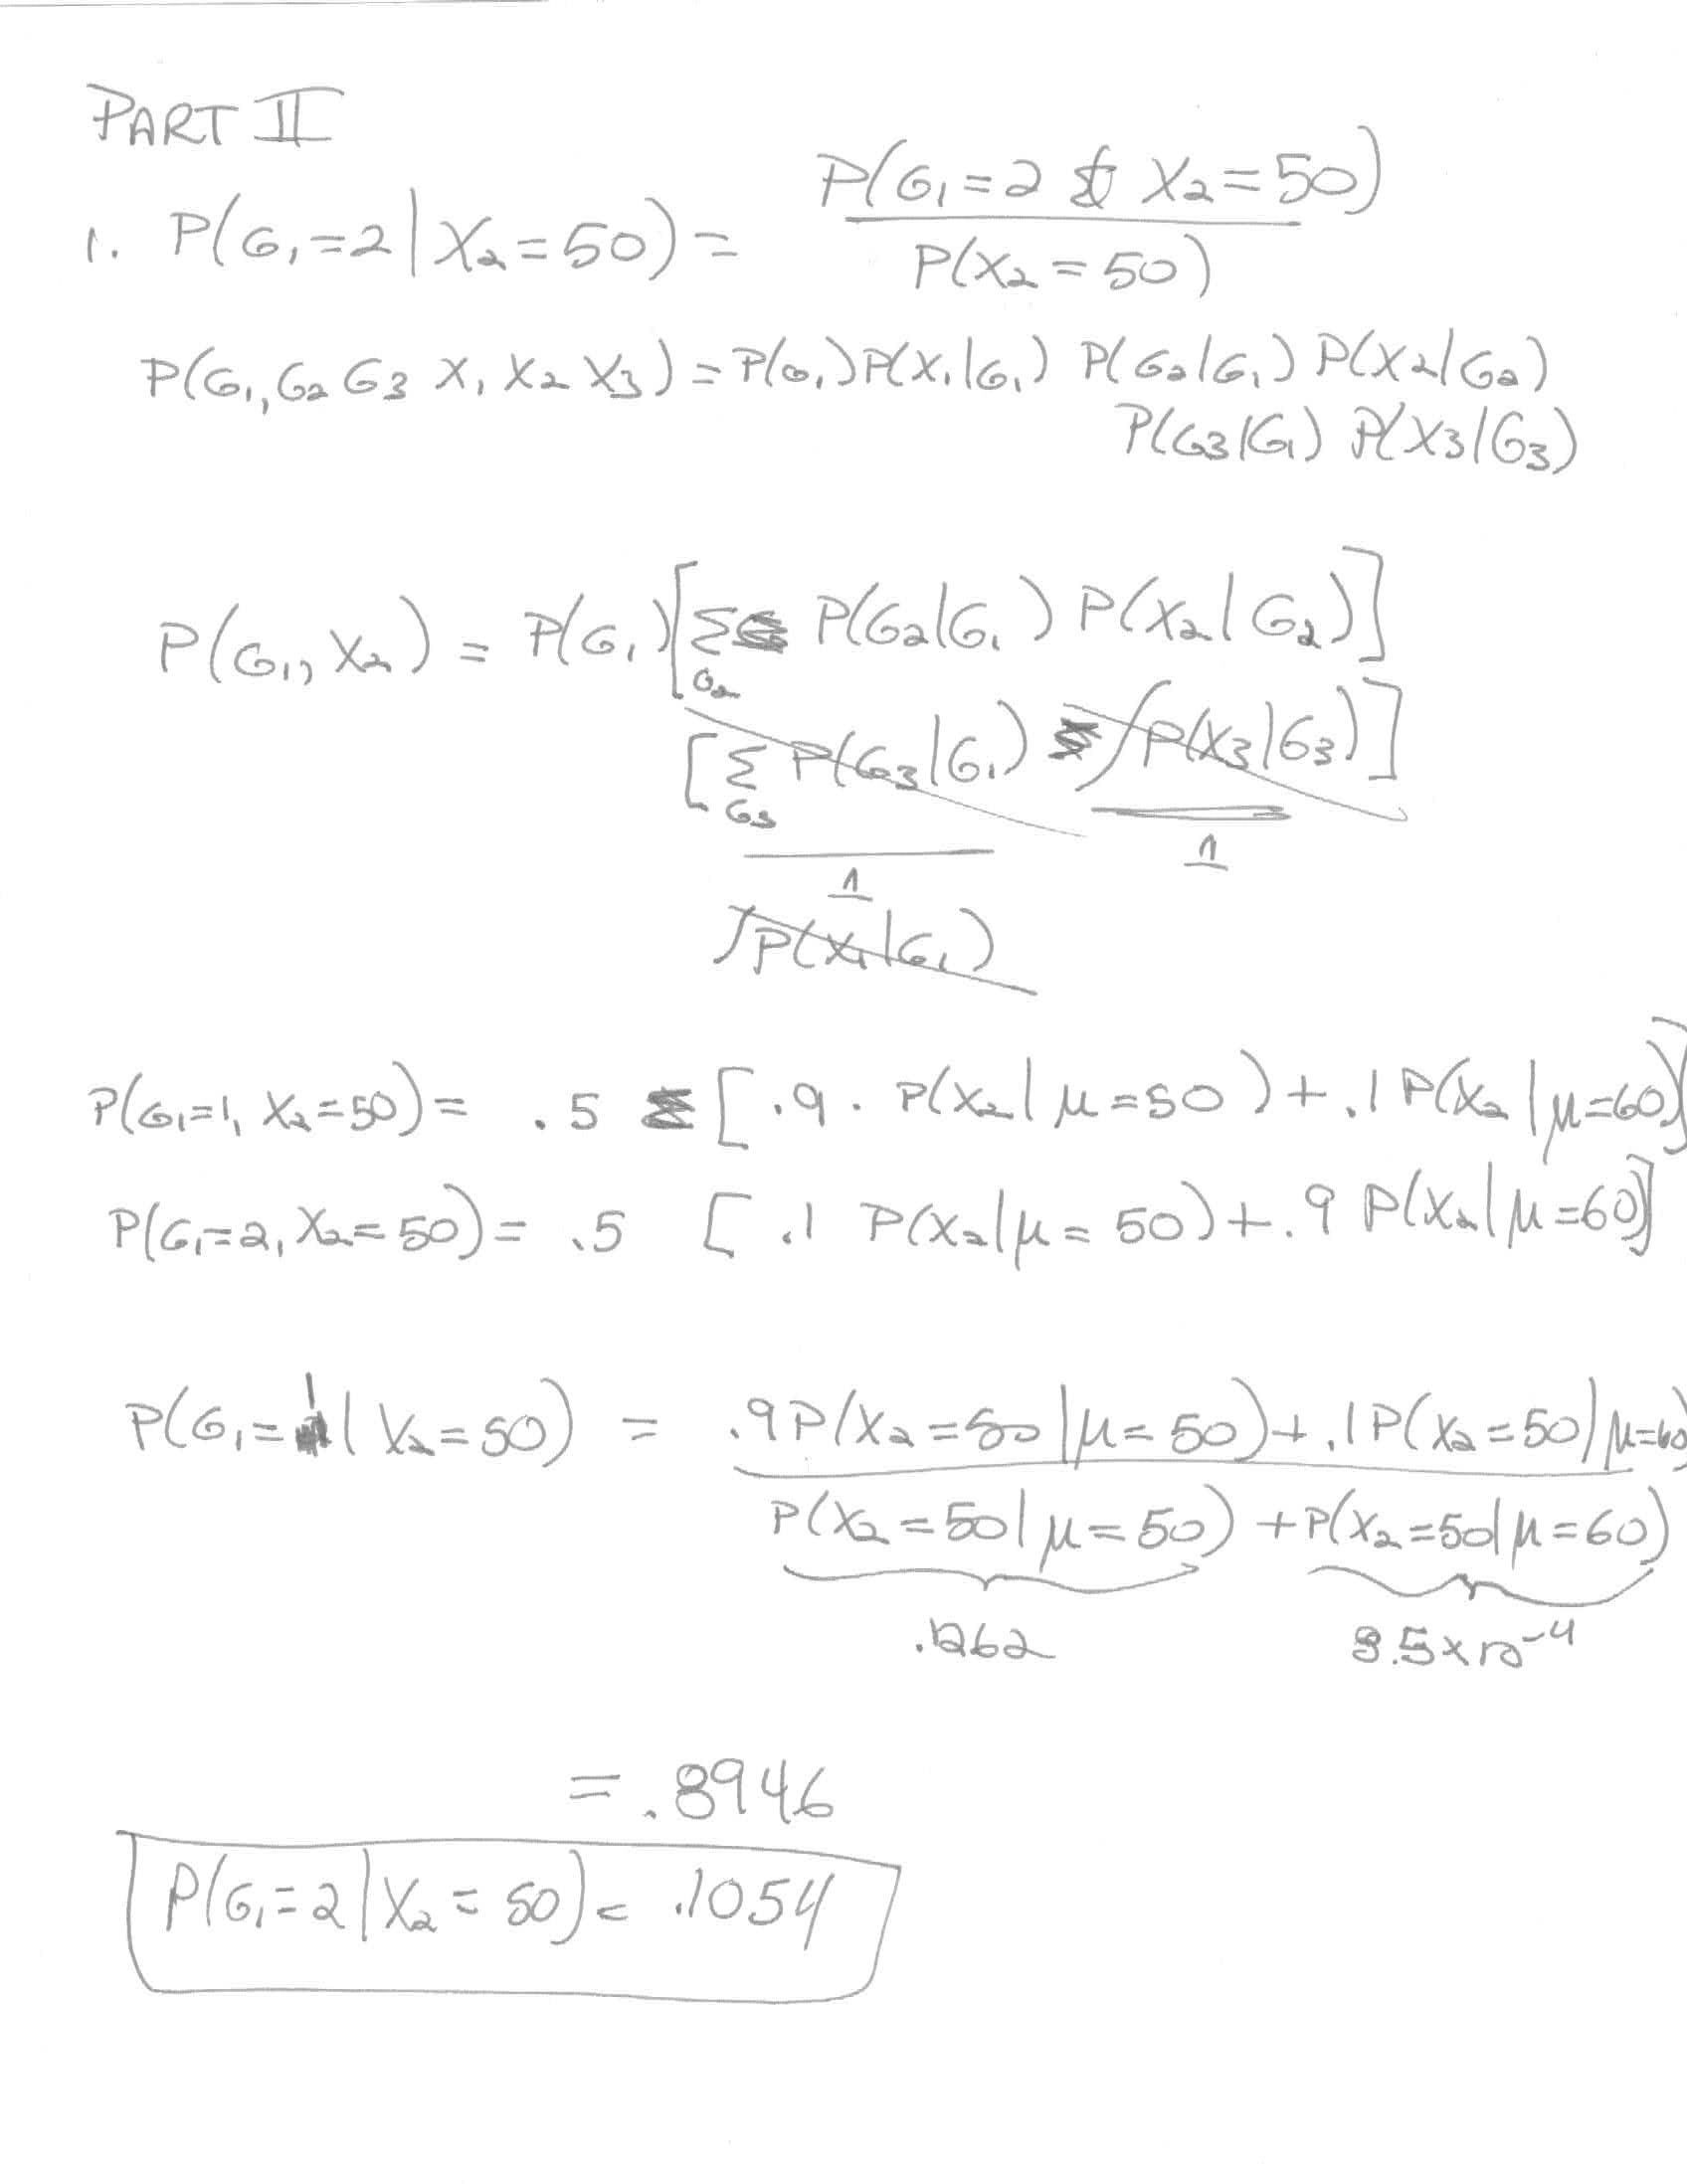 PART II
1. P(G₁=2 | X₂=50) = P(G₁=2 & X₂=50) / P(X₂=50)
P(G₁, G₂ G₃ X₁ X₂ X₃) = P(G₁) P(X₁|G₁) P(G₂|G₁) P(X₂|G₂)
P(G₃|G₁) P(X₃|G₃)
P(G₁, X₂) = P(G₁) [Σ_G₂ P(G₂|G₁) P(X₂|G₂)]
[Σ_G₃ P(G₃|G₁) ∫P(X₃|G₃)]
1
1
∫P(X₁|G₁)
P(G₁=1, X₂=50) = .5 [.9 · P(X₂|μ=50) + .1 P(X₂|μ=60)]
P(G₁=2, X₂=50) = .5 [.1 P(X₂|μ=50) + .9 P(X₂|μ=60)]
P(G₁=1 | X₂=50) = .9P(X₂=50|μ=50) + .1P(X₂=50|μ=60) / P(X₂=50|μ=50) + P(X₂=50|μ=60)
.1262 8.5x10⁻⁴
= .8946
P(G₁=2 | X₂=50) = .1054